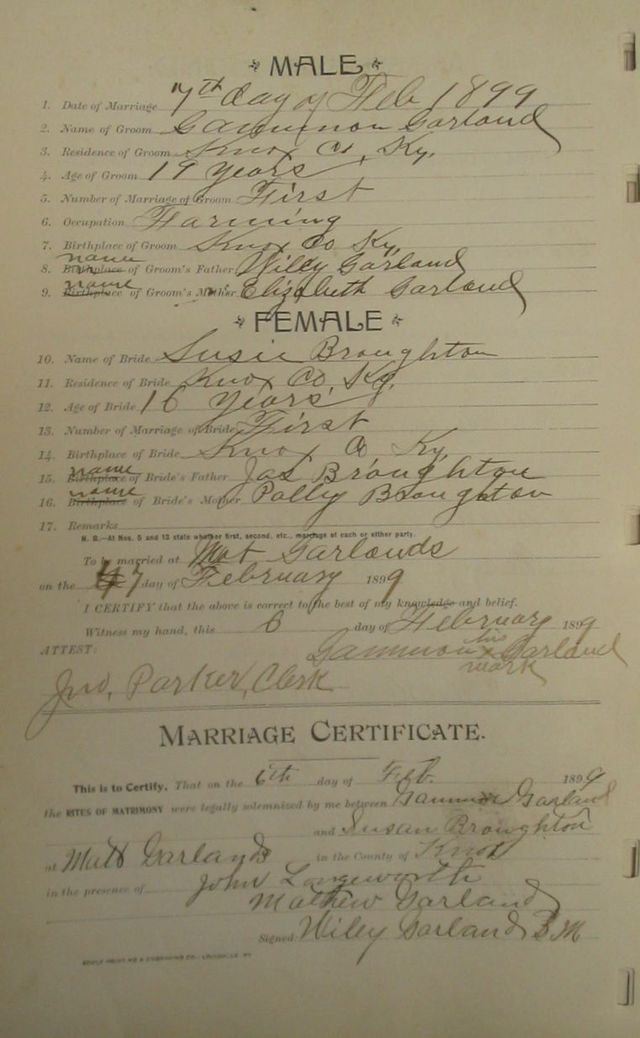 MALE
1. Date of Marriage 7th day of Feb 1899
2. Name of Groom Gammon Garland
3. Residence of Groom Knox Co, Ky.
4. Age of Groom 19 years
5. Number of Marriage of Groom First
6. Occupation Farming
7. Birthplace of Groom Knox Co Ky,
name
8. Birthplace of Groom's Father Wiley Garland
name
9. Birthplace of Groom's Mother Elizabeth Garland
FEMALE
10. Name of Bride Susie Broughton
11. Residence of Bride Knox Co, Ky,
12. Age of Bride 16 years,
13. Number of Marriage of Bride First
14. Birthplace of Bride Knox Co Ky
name
15. Birthplace of Bride's Father Jas Broughton
name
16. Birthplace of Bride's Mother Polly Broughton
17. Remarks
N. B.—At Nos. 5 and 13 state whether first, second, etc., marriage of each or either party.
To be married at Mat Garlands
on the 7 day of February 1899
I CERTIFY that the above is correct to the best of my knowledge and belief.
Witness my hand, this 6 day of February 1899
ATTEST: Gammon his x mark Garland
Jno, Parker, Clerk
MARRIAGE CERTIFICATE.
This is to Certify, That on the 6th day of Feb. 1899
the RITES OF MATRIMONY were legally solemnized by me between Gammon Garland
and Susan Broughton
at Matt Garlands in the County of Knox
in the presence of John Longworth
Mathew Garland
Signed Wiley Garland